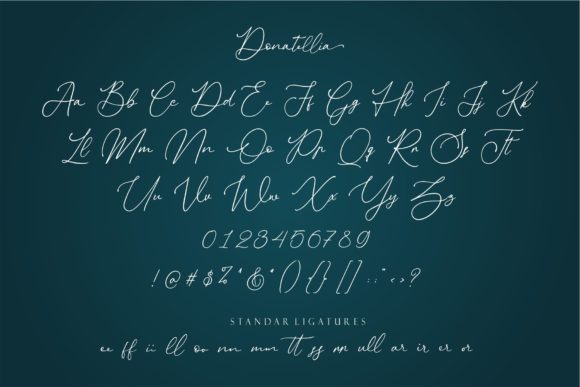 Donatellia
Aa Bb Cc Dd Ee Ff Gg Hh Ii Jj Kk
Ll Mm Nn Oo Pp Qq Rr Ss Tt
Uu Vv Ww Xx Yy Zz
0123456789
!@#$%^&*(){}[]:;"<>?
STANDAR LIGATURES
ee ff ii ll oo nn mm tt ss pp ull ar ir er or